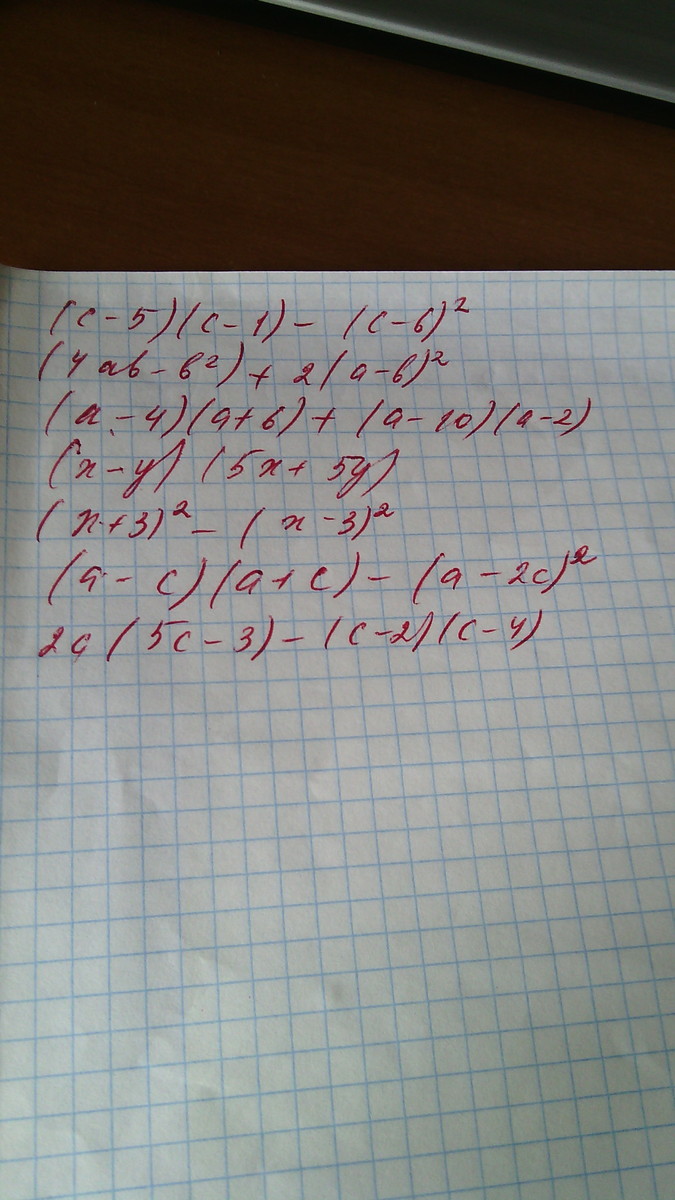 (c-5)(c-1)- (c-6)²
(4ab-b²)+ 2(a-b)²
(a-4)(a+6)+(a-10)(a-2)
(x-y)(5x+5y)
(x+3)²-(x-3)²
(a-c)(a+c)-(a-2c)²
2c(5c-3)-(c-2)(c-4)